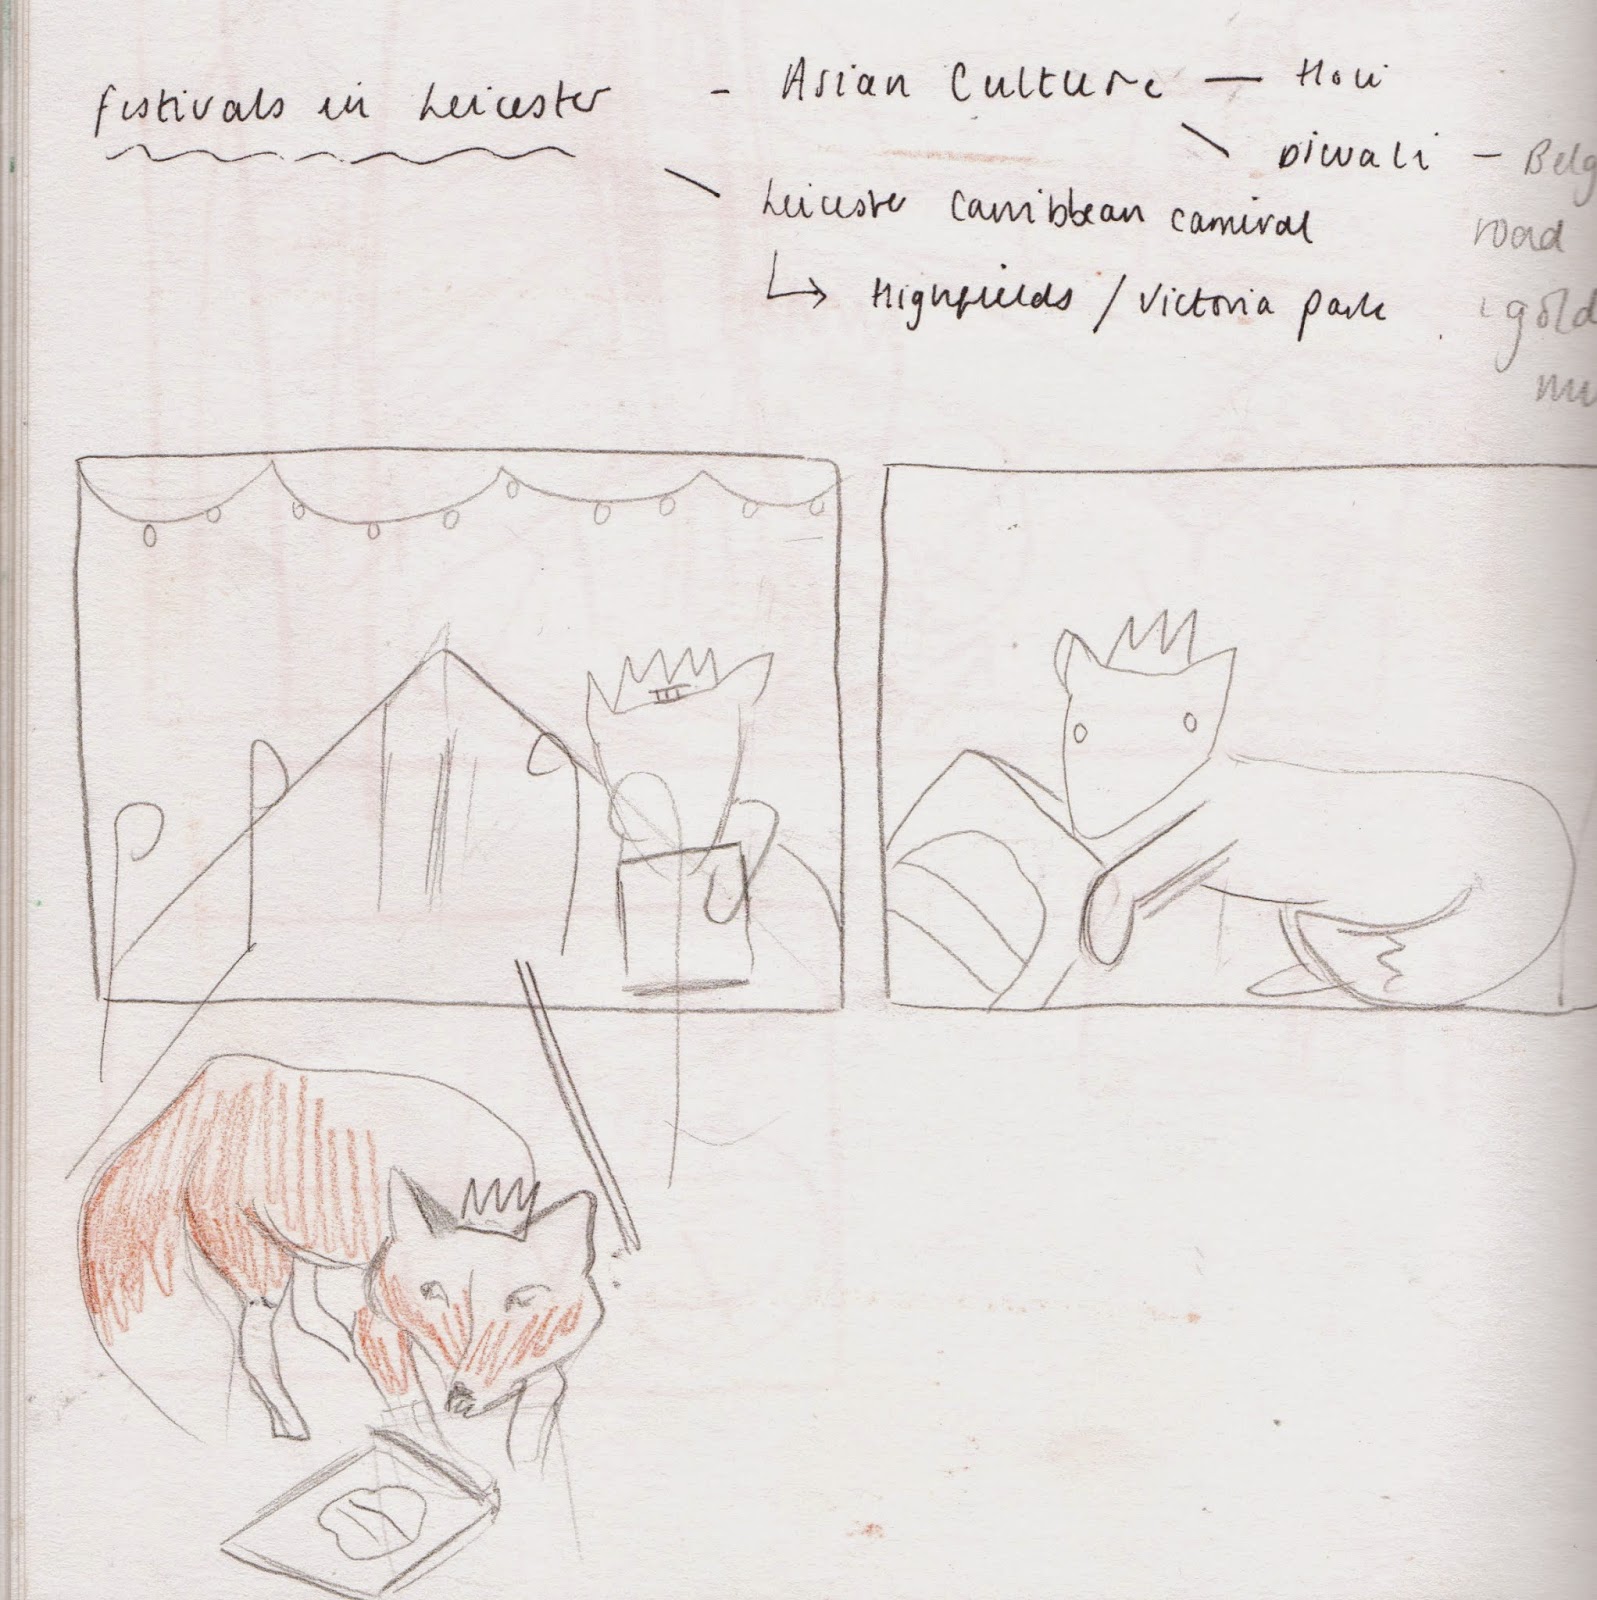 festivals in Leicester - Asian Culture — Holi
Diwali — Belg
road
Leicester Carribbean carnival
gold
↳ Highfields / Victoria park